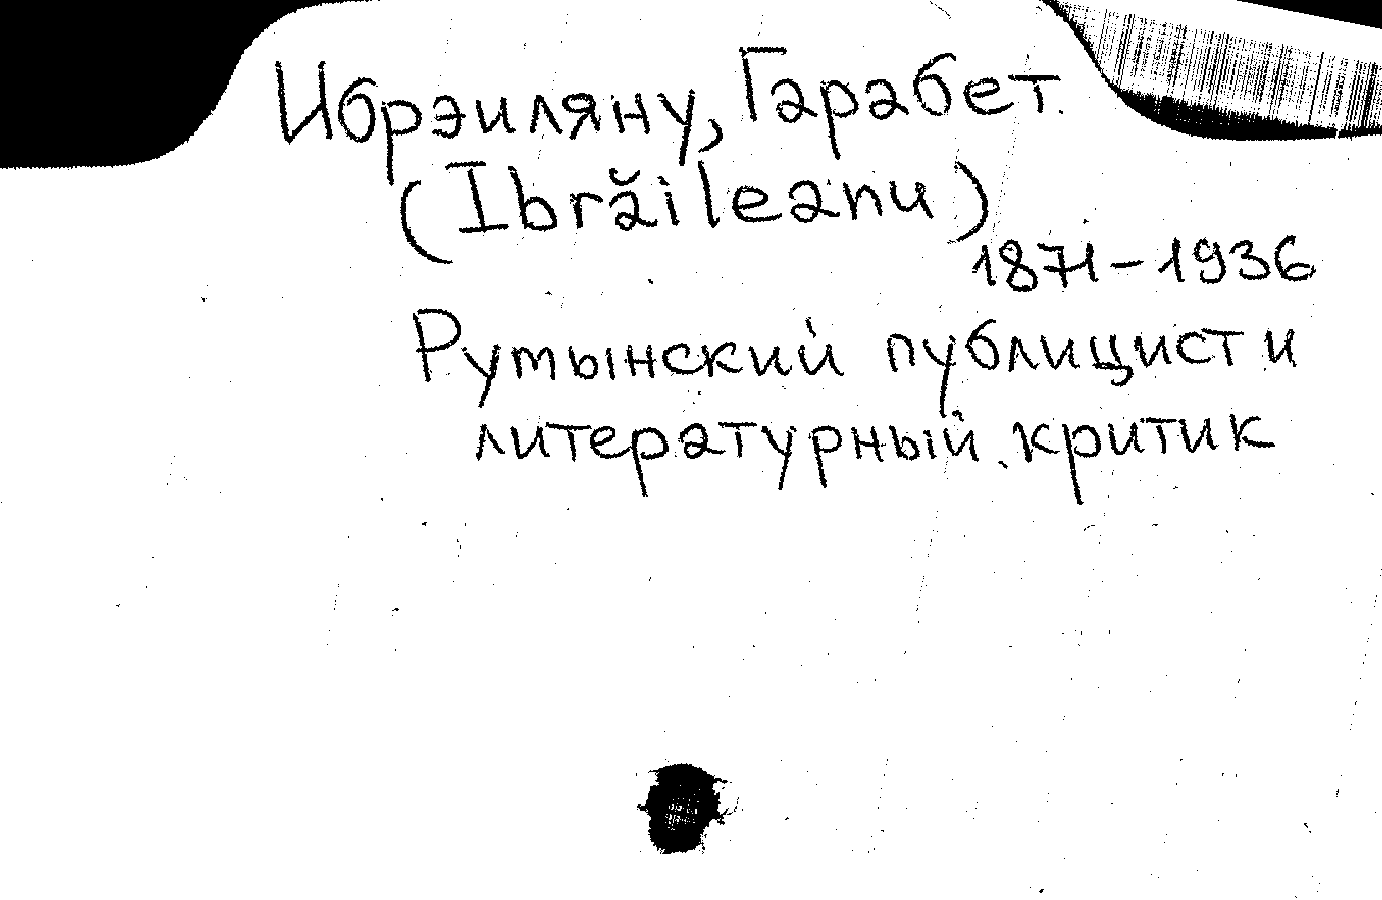 Ибрэиляну, Гарабет.
(Ibrăileanu)
1871-1936
Румынский публицист и
литературный критик